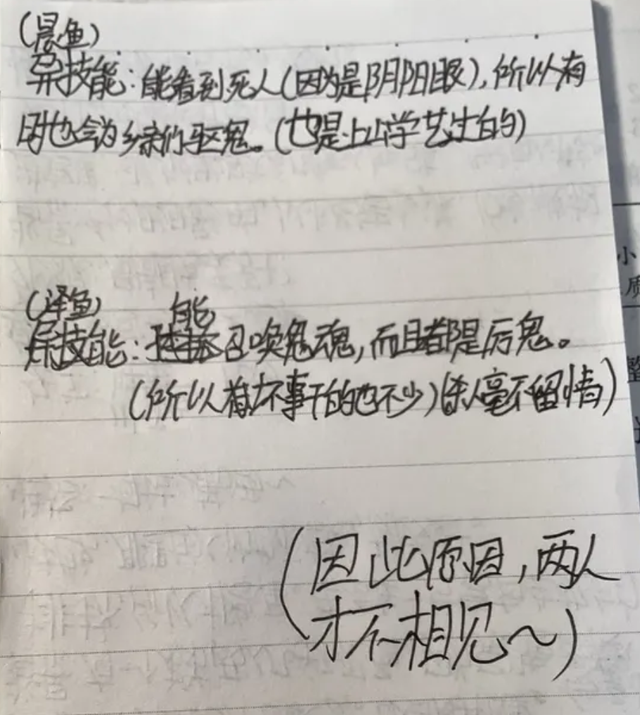 (晨鱼)
杂技能：能看到死人(因为是阴阳眼)，所以有
时也会为乡亲们驱鬼。(也是上山学艺生的)
(泽鱼)
杂技能：能召唤鬼魂，而且都是厉鬼。
(所以有坏事干的也不少)(杀人毫不留情)
(因此原因，两人
才不相见～)
小
质